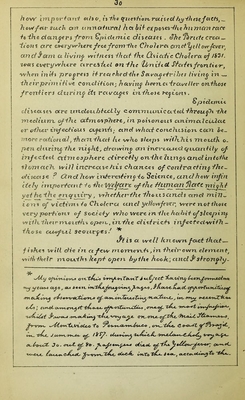 30
how important also, is the question raised by these facts,—
how far such an unnatural habit exposes the human race
to the dangers from Epidemic diseases. The Brute crea-
tions are everywhere free from the Cholera and Yellow fever,
and I am a living witness that the Asiatic Cholera of 1831.
was everywhere arrested on the United States frontier,
when in its progress it reached the Savage tribes living in
their primitive condition; having been a traveller on those
frontiers during its ravages in those regions.
Epidemic
diseases are undoubtedly communicated through the
medium of the atmosphere, in poisonous animalculae
or other infectious agents; and what conclusion can be
more rational, than that he who sleeps with his mouth o-
pen during the night, drawing an increased quantity of
infected atmosphere directly on the lungs and into the
stomach will increase his chances of contracting the
disease? And how interesting to Science, and how infin
itely important to the Welfare of the Human Race might
yet be the enquiry, whether the thousands and mill-
ions of victims to Cholera and yellow fever, were not those
very portions of society who were in the habit of sleeping
with their mouths open, in the districts infected with
those awful scourges! *
It is a well known fact that
fishes will die in a few moments, in their own element,
with their mouths kept open by the hook; and I strongly
* My opinions on this important subject having been formed ma
ny years ago, as seen in the foregoing pages, I have had opportunities of
making observations of an interesting nature, in my recent tra
vels; and amongst those opportunities, one of the most impressive,
whilst I was making the voyage on one of the Mail Steamers,
from Montevideo to Pernambuco, on the coast of Brazil,
in the summer of 1857. during which melancholy voyage
about 30. out of 80. passengers died of the Yellow fever, and
were launched from the deck into the sea, according to the